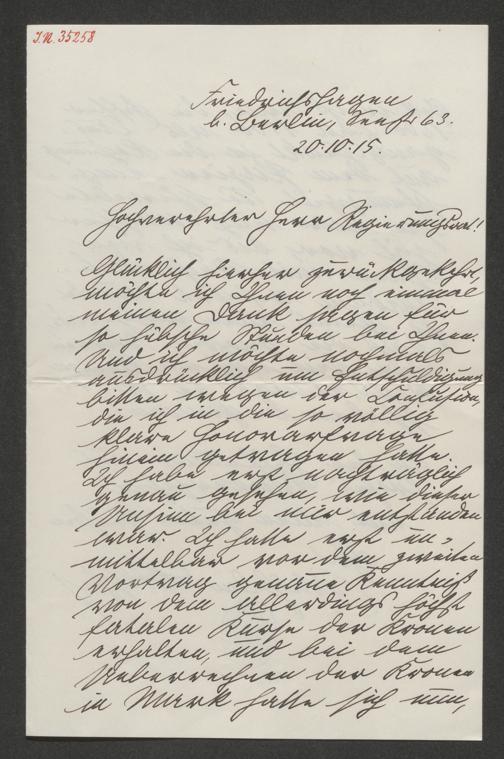 I.N. 35258
Friedrichshagen
b. Berlin, Seestr 63.
20.10.15.
Hochverehrter Herr Regierungsrat!
Glücklich hierher zurückgekehrt,
möchte ich Ihnen noch einmal
meinen Dank sagen für
so hübsche Stunden bei Ihnen.
Und ich möchte nochmals
ausdrücklich um Entschuldigung
bitten wegen der Confusion,
die ich in die so völlig
klare Honorarfrage
hinein getragen hatte.
Ich habe erst nachträglich
genau gesehen, wie dieser
Unsinn bei mir entstanden
war. Ich hatte erst un-
mittelbar vor dem zweiten
Vortrag genaue Kenntniß
von dem allerdings höchst
fatalen Kurse der Kronen
erhalten, und bei dem
Ueberrechnen der Kronen
in Mark hatte sich nun,